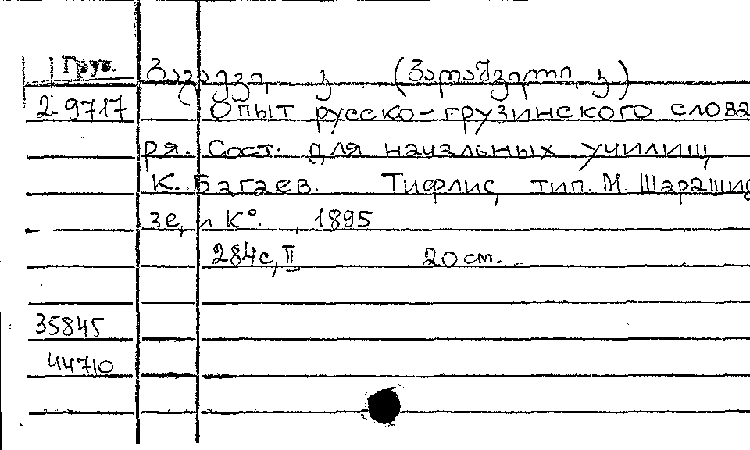 Груз.
2-9717
Опыт русско-грузинского слова
ря. Сост. для начальных училищ
К. Багаев. Тифлис, тип. М. Шарашид
зе, и К°., 1895
284с, II 20 см.
35845
44710